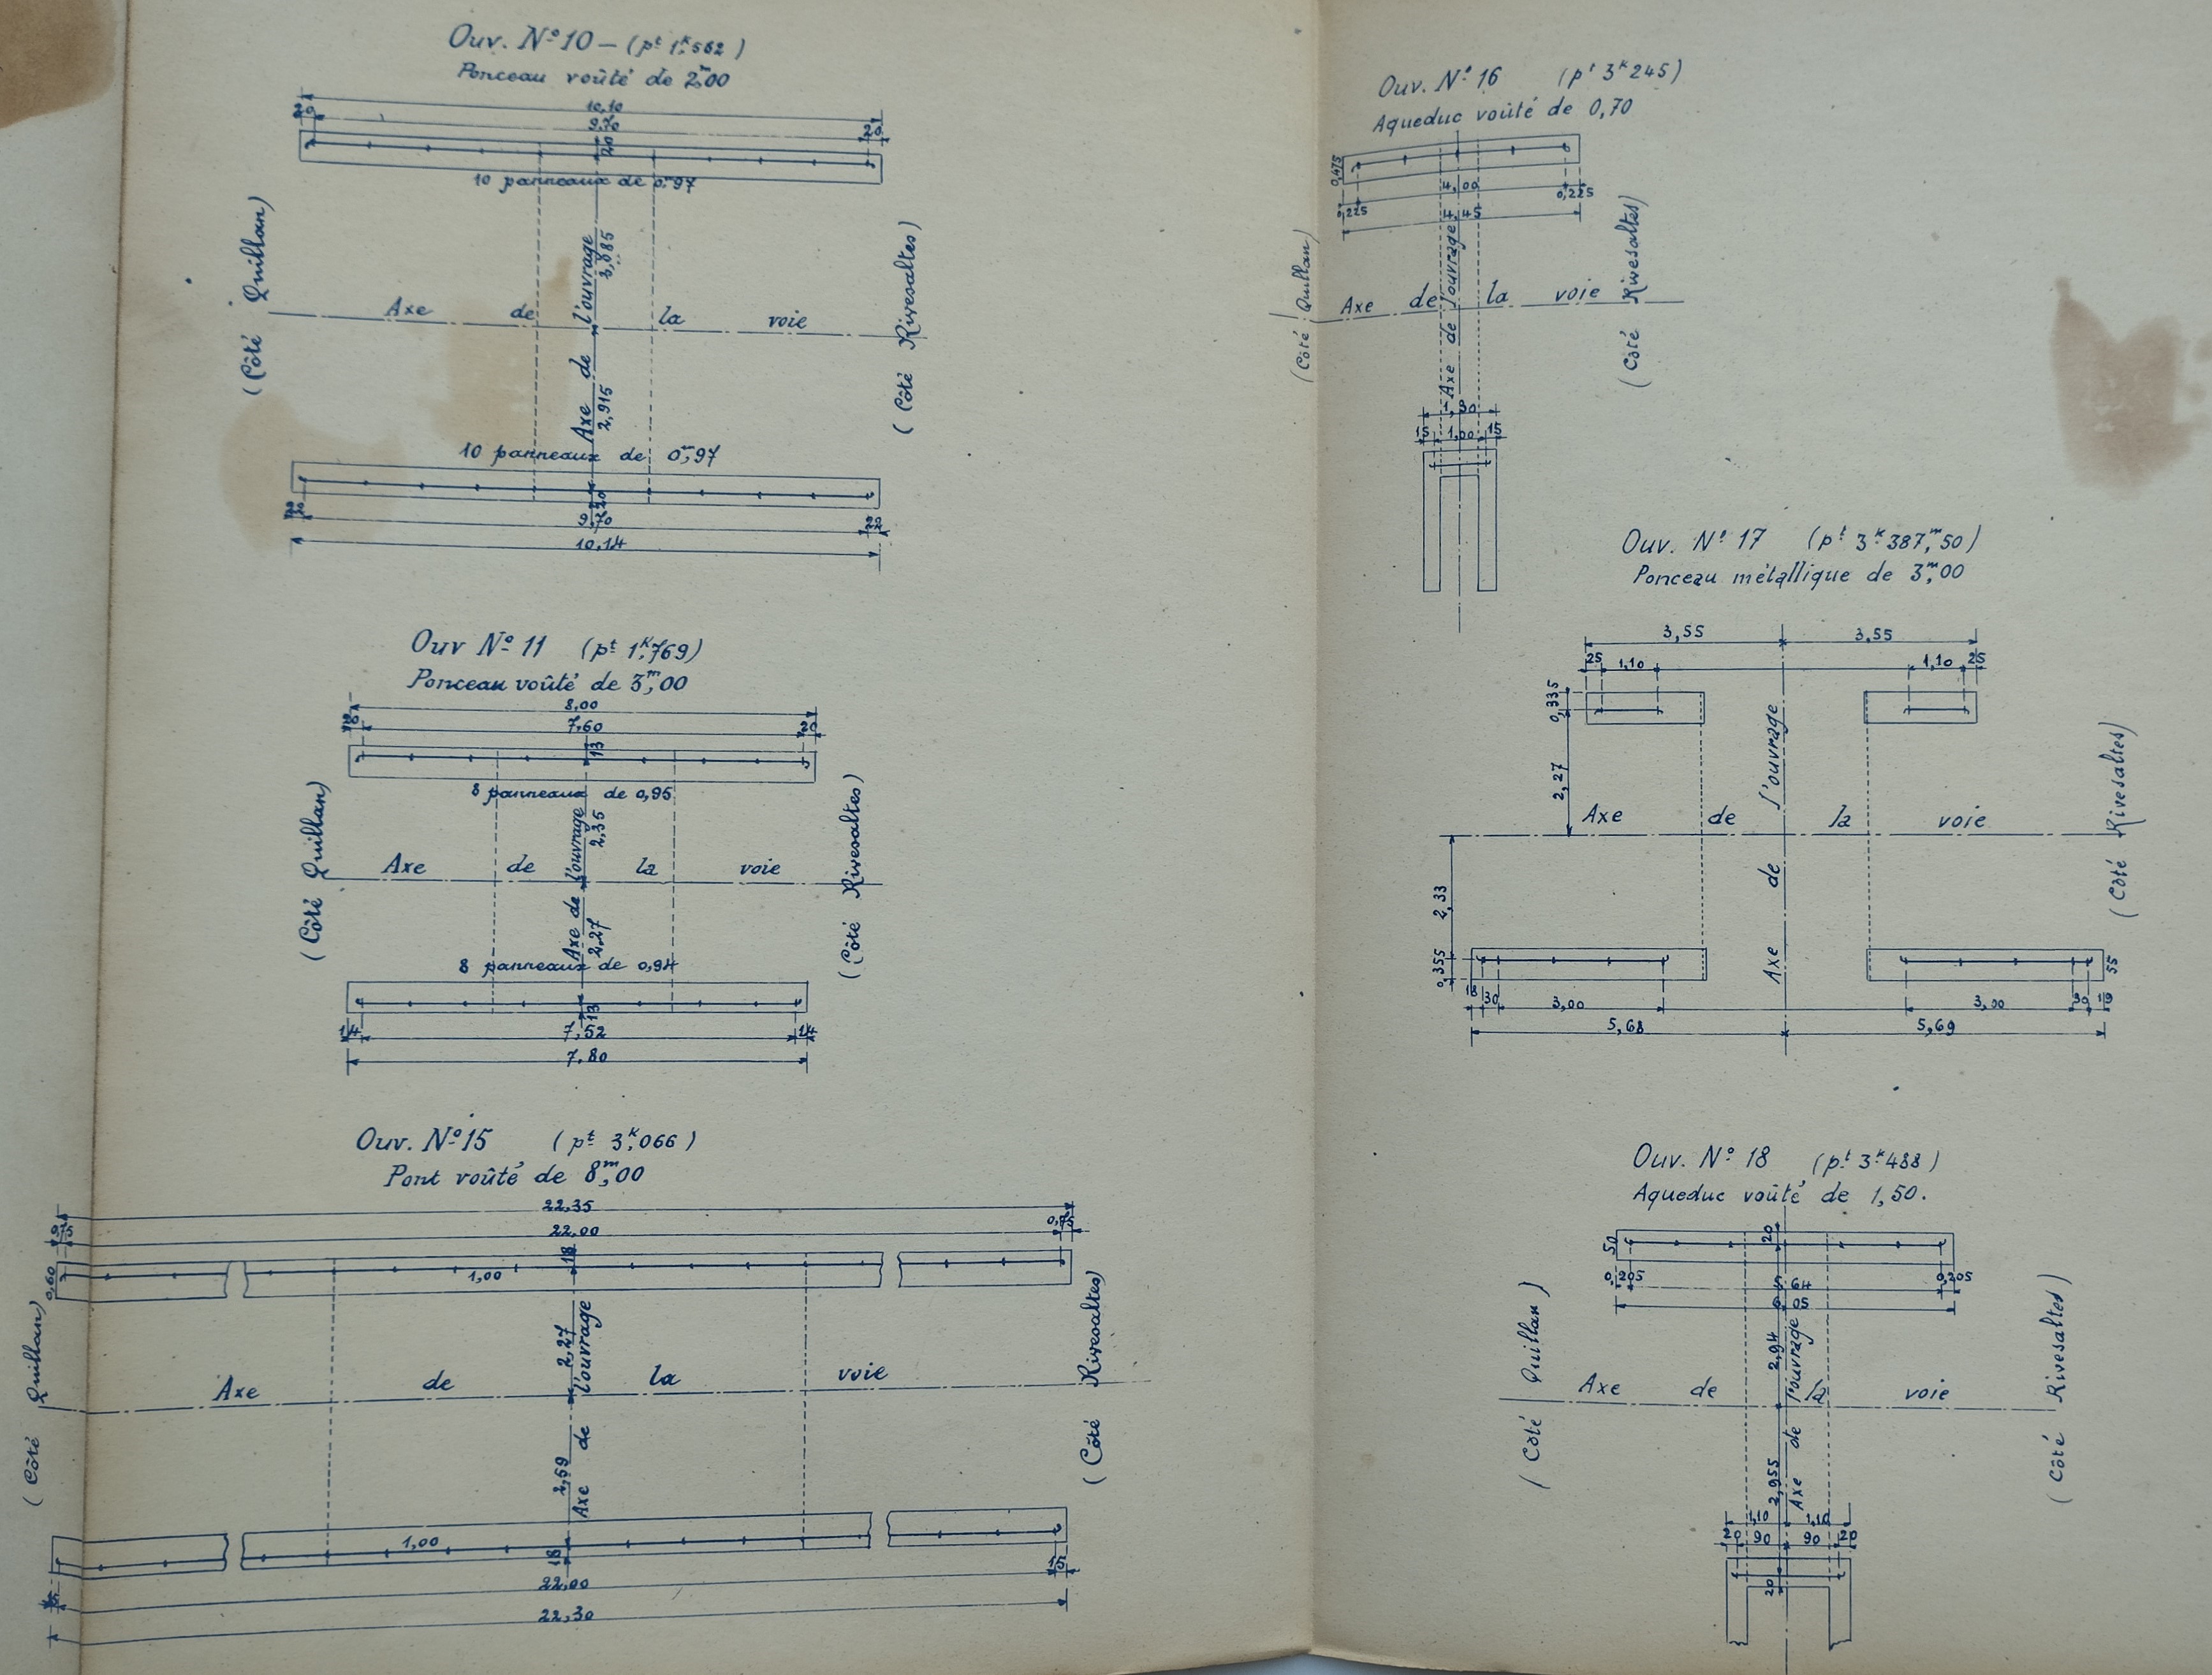 Ouv. Nº 10 — (pt 1k,562)
Ponceau voûté de 2m,00
10,10
20
9,70
20
20
10 panneaux de 0m,97
(Côté Quillan)
Axe de la voie
Axe de l'ouvrage
3,085
2,915
(Côté Rivesaltes)
10 panneaux de 0m,97
20
9,70
22
10,14
Ouv Nº 11 (pt 1k,769)
Ponceau voûté de 3m,00
8,00
7,60
20
13
8 panneaux de 0,95
(Côté Quillan)
Axe de la voie
Axe de l'ouvrage
2,35
2,27
(Côté Rivesaltes)
8 panneaux de 0,94
13
14
7,52
14
7,80
Ouv. Nº 15 (pt 3k,066)
Pont voûté de 8m,00
22,35
22,00
0,60
1,00
18
(Côté Quillan)
Axe de la voie
Axe de l'ouvrage
2,27
2,69
(Côté Rivesaltes)
1,00
18
15
22,00
15
22,30
Ouv. Nº 16 (pt 3k 245)
Aqueduc voûté de 0,70
0,475
4,00
0,225
0,225
4,45
(Côté Quillan)
Axe de la voie
Axe de l'ouvrage
(Côté Rivesaltes)
1,30
15
1,00
15
Ouv. Nº 17 (pt 3k 387,m50)
Ponceau métallique de 3m,00
3,55
3,55
25
1,10
1,10
25
0,335
2,27
Axe de la voie
Axe de l'ouvrage
(Côté Rivesaltes)
2,33
0,355
55
18
30
3,00
3,00
30
19
5,68
5,69
Ouv. Nº 18 (pt 3k 488)
Aqueduc voûté de 1,50.
50
20
0,205
5,64
0,205
6,05
(Côté Quillan)
Axe de la voie
Axe de l'ouvrage
2,94
2,955
(Côté Rivesaltes)
1,10
1,10
20
90
90
20
20